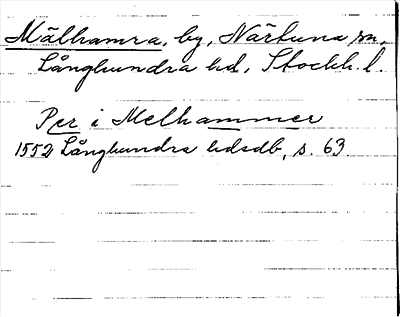 Mälhamra, by, Närtuna sn,
Långhundra hd, Stockh. l.
Per i Melhammer
1552 Långhundra hdsdb, s. 63